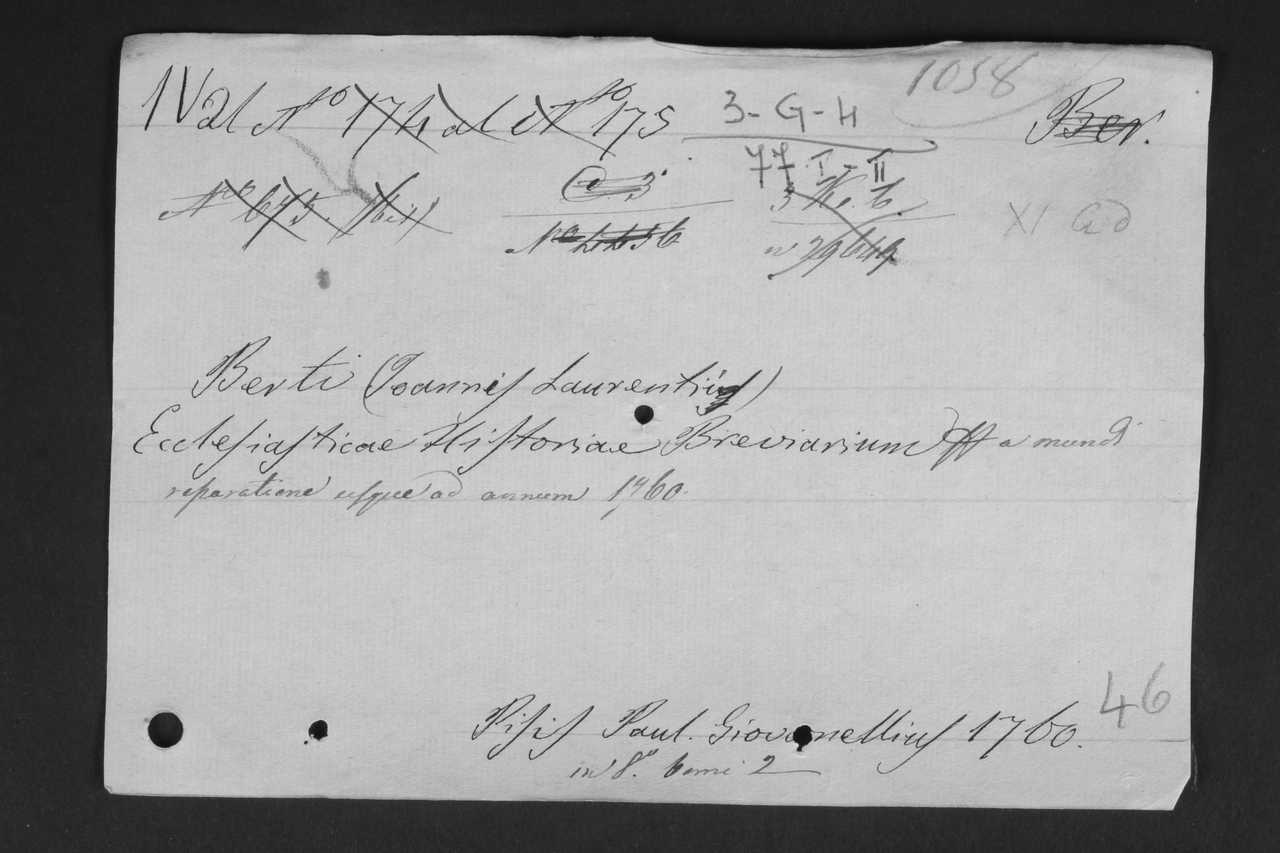 1058
N° 174 al N° 175
3-G-H
Ber.
77 I-II
N° 675.
C 3
3
XI G d
Berti (Joannis Laurentius)
Ecclesiasticae Historiae Breviarium a mundi
reparatione usque ad annum 1760.
46
Pisis Paul. Giovanellius 1760.
in 8.° tomi 2